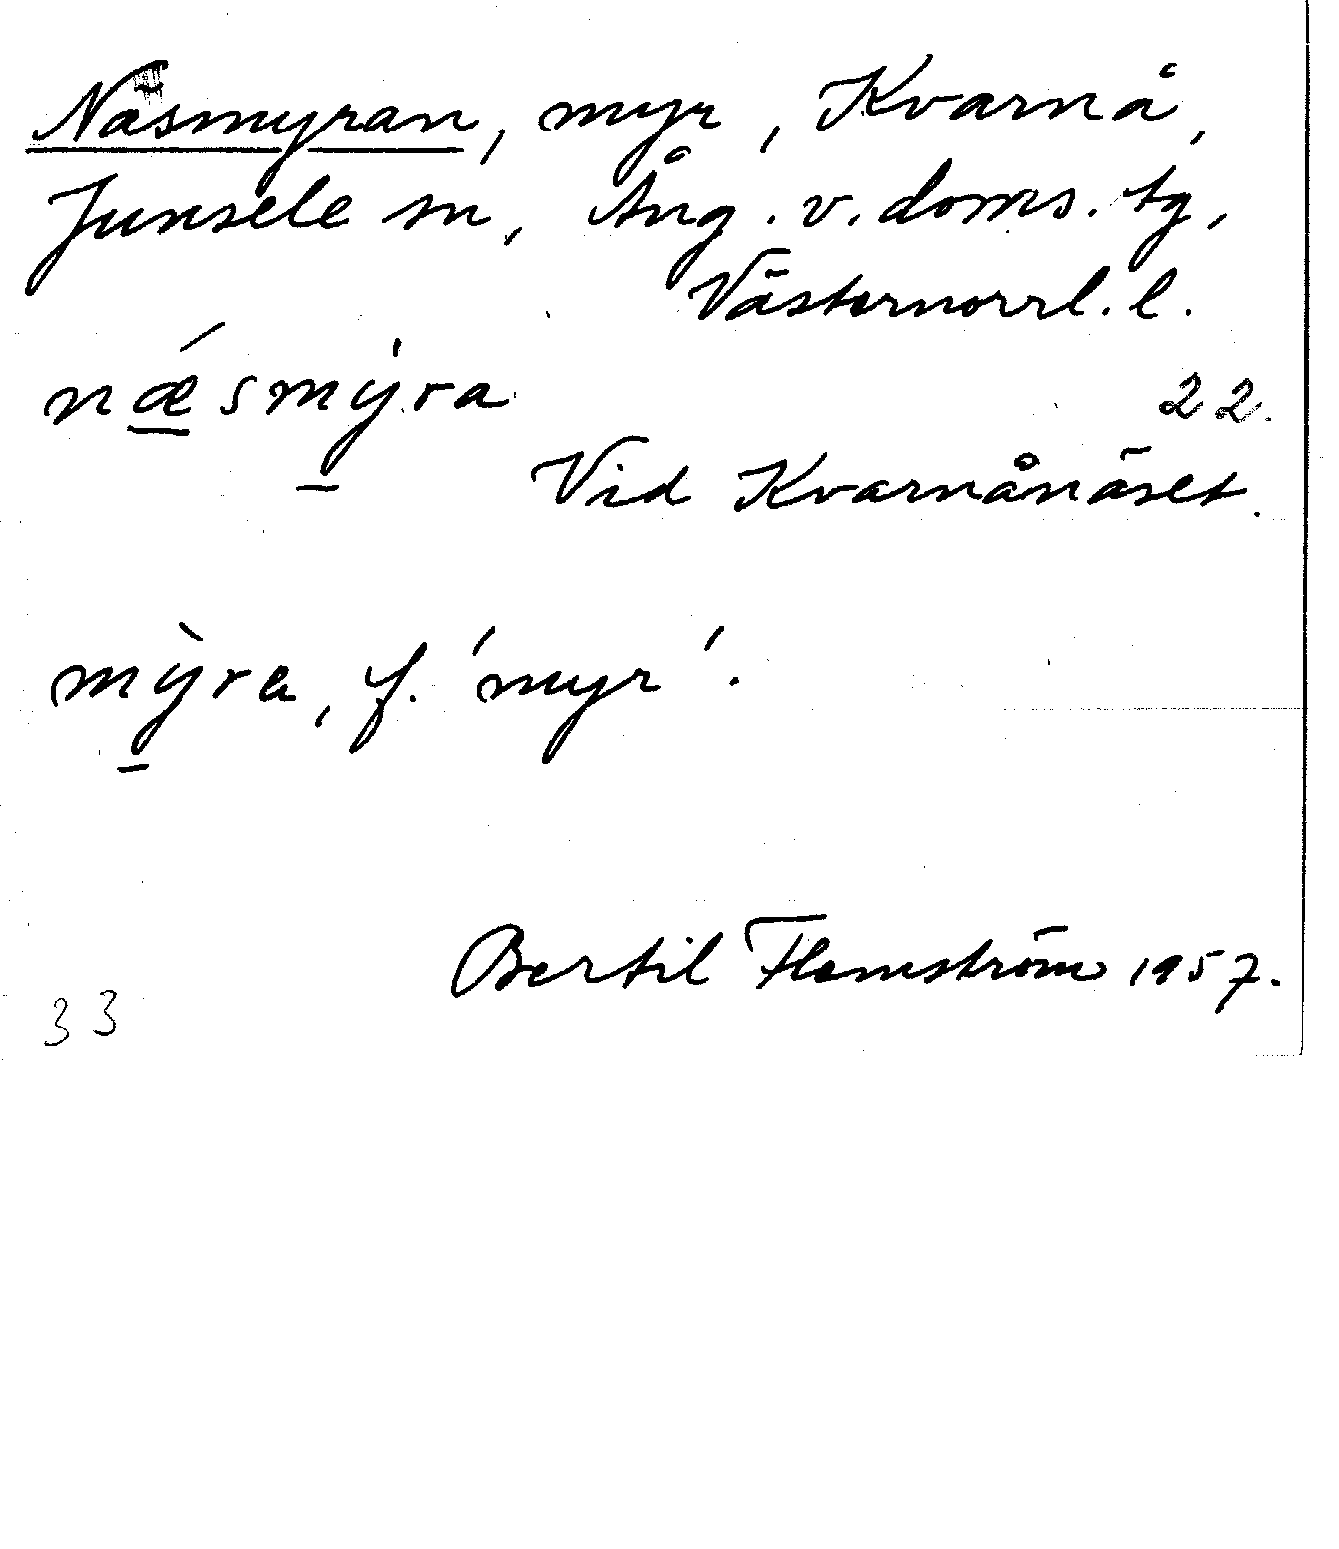 Näsmyran, myr, Kvarnå,
Junsele sn, Ång. v. doms. tg,
Västernorrl. l.
nǽ̱smỳ̱ra 22.
Vid Kvarnånäset.
mỳ̱ra, f. 'myr'.
Bertil Flemström 1957.
33